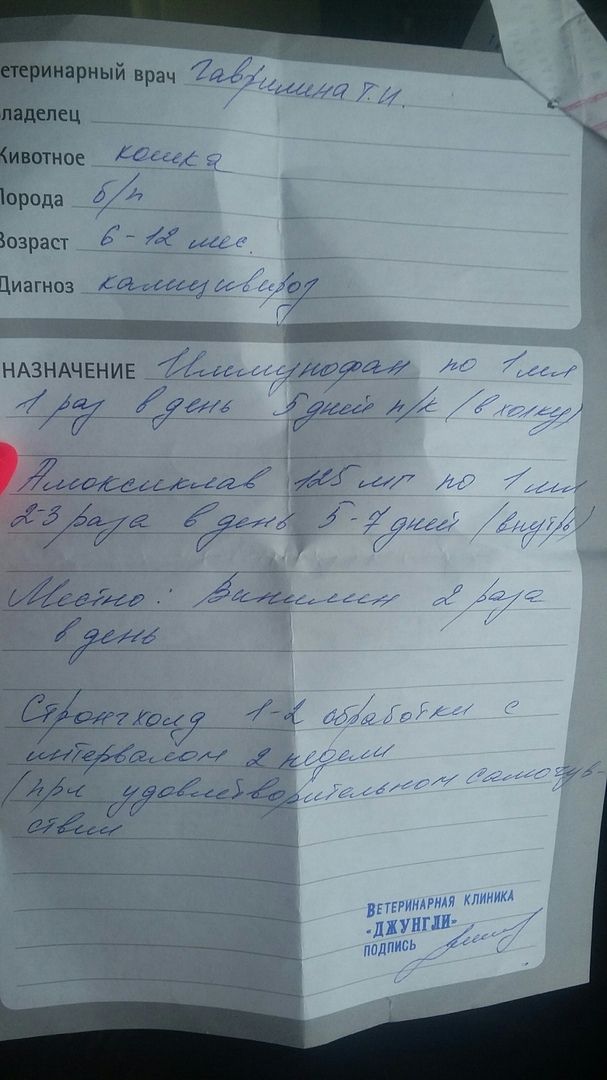 етеринарный врач Гаврилина Т.И.
ладелец
Животное кошка
Порода б/п
Возраст 6-12 мес.
Диагноз калицивироз
НАЗНАЧЕНИЕ Иммунофан по 1 мл
1 раз в день 5 дней п/к (в холку)
Амоксиклав 125 мг по 1 мл
2-3 раза в день 5-7 дней (внутрь)
Местно: Винилин 2 раза
в день
Стронгхолд 1-2 обработки с
интервалом 2 недели
(при удовлетворительном самочув-
ствии
ВЕТЕРИНАРНАЯ КЛИНИКА
"ДЖУНГЛИ"
ПОДПИСЬ